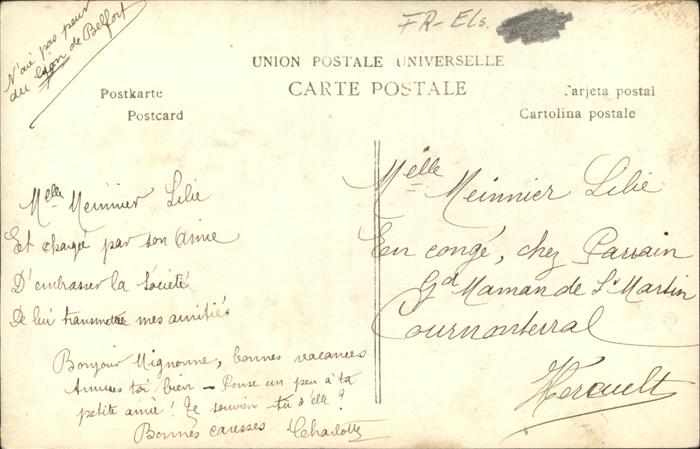 N'aie pas peur
du lion de Belfort
FR-Els.
UNION POSTALE UNIVERSELLE
CARTE POSTALE
Postkarte
Postcard
Tarjeta postal
Cartolina postale
Melle Meinnier Lilie
Est chargée par son Amie
D'embrasser la Société
De lui transmettre mes amitiés
Bonjour Mignonne, bonnes vacances
Amuses toi bien - Pense un peu à ta
petite amie! Te souvien-tu d'elle?
Bonnes caresses Charlotte
Melle Meinnier Lilie
En congé, chez Parrain
Gd Maman de St Martin
Cournonterral
Hérault